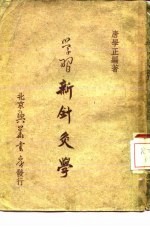 唐學正編著
学習
新針灸學
北京 書局發行